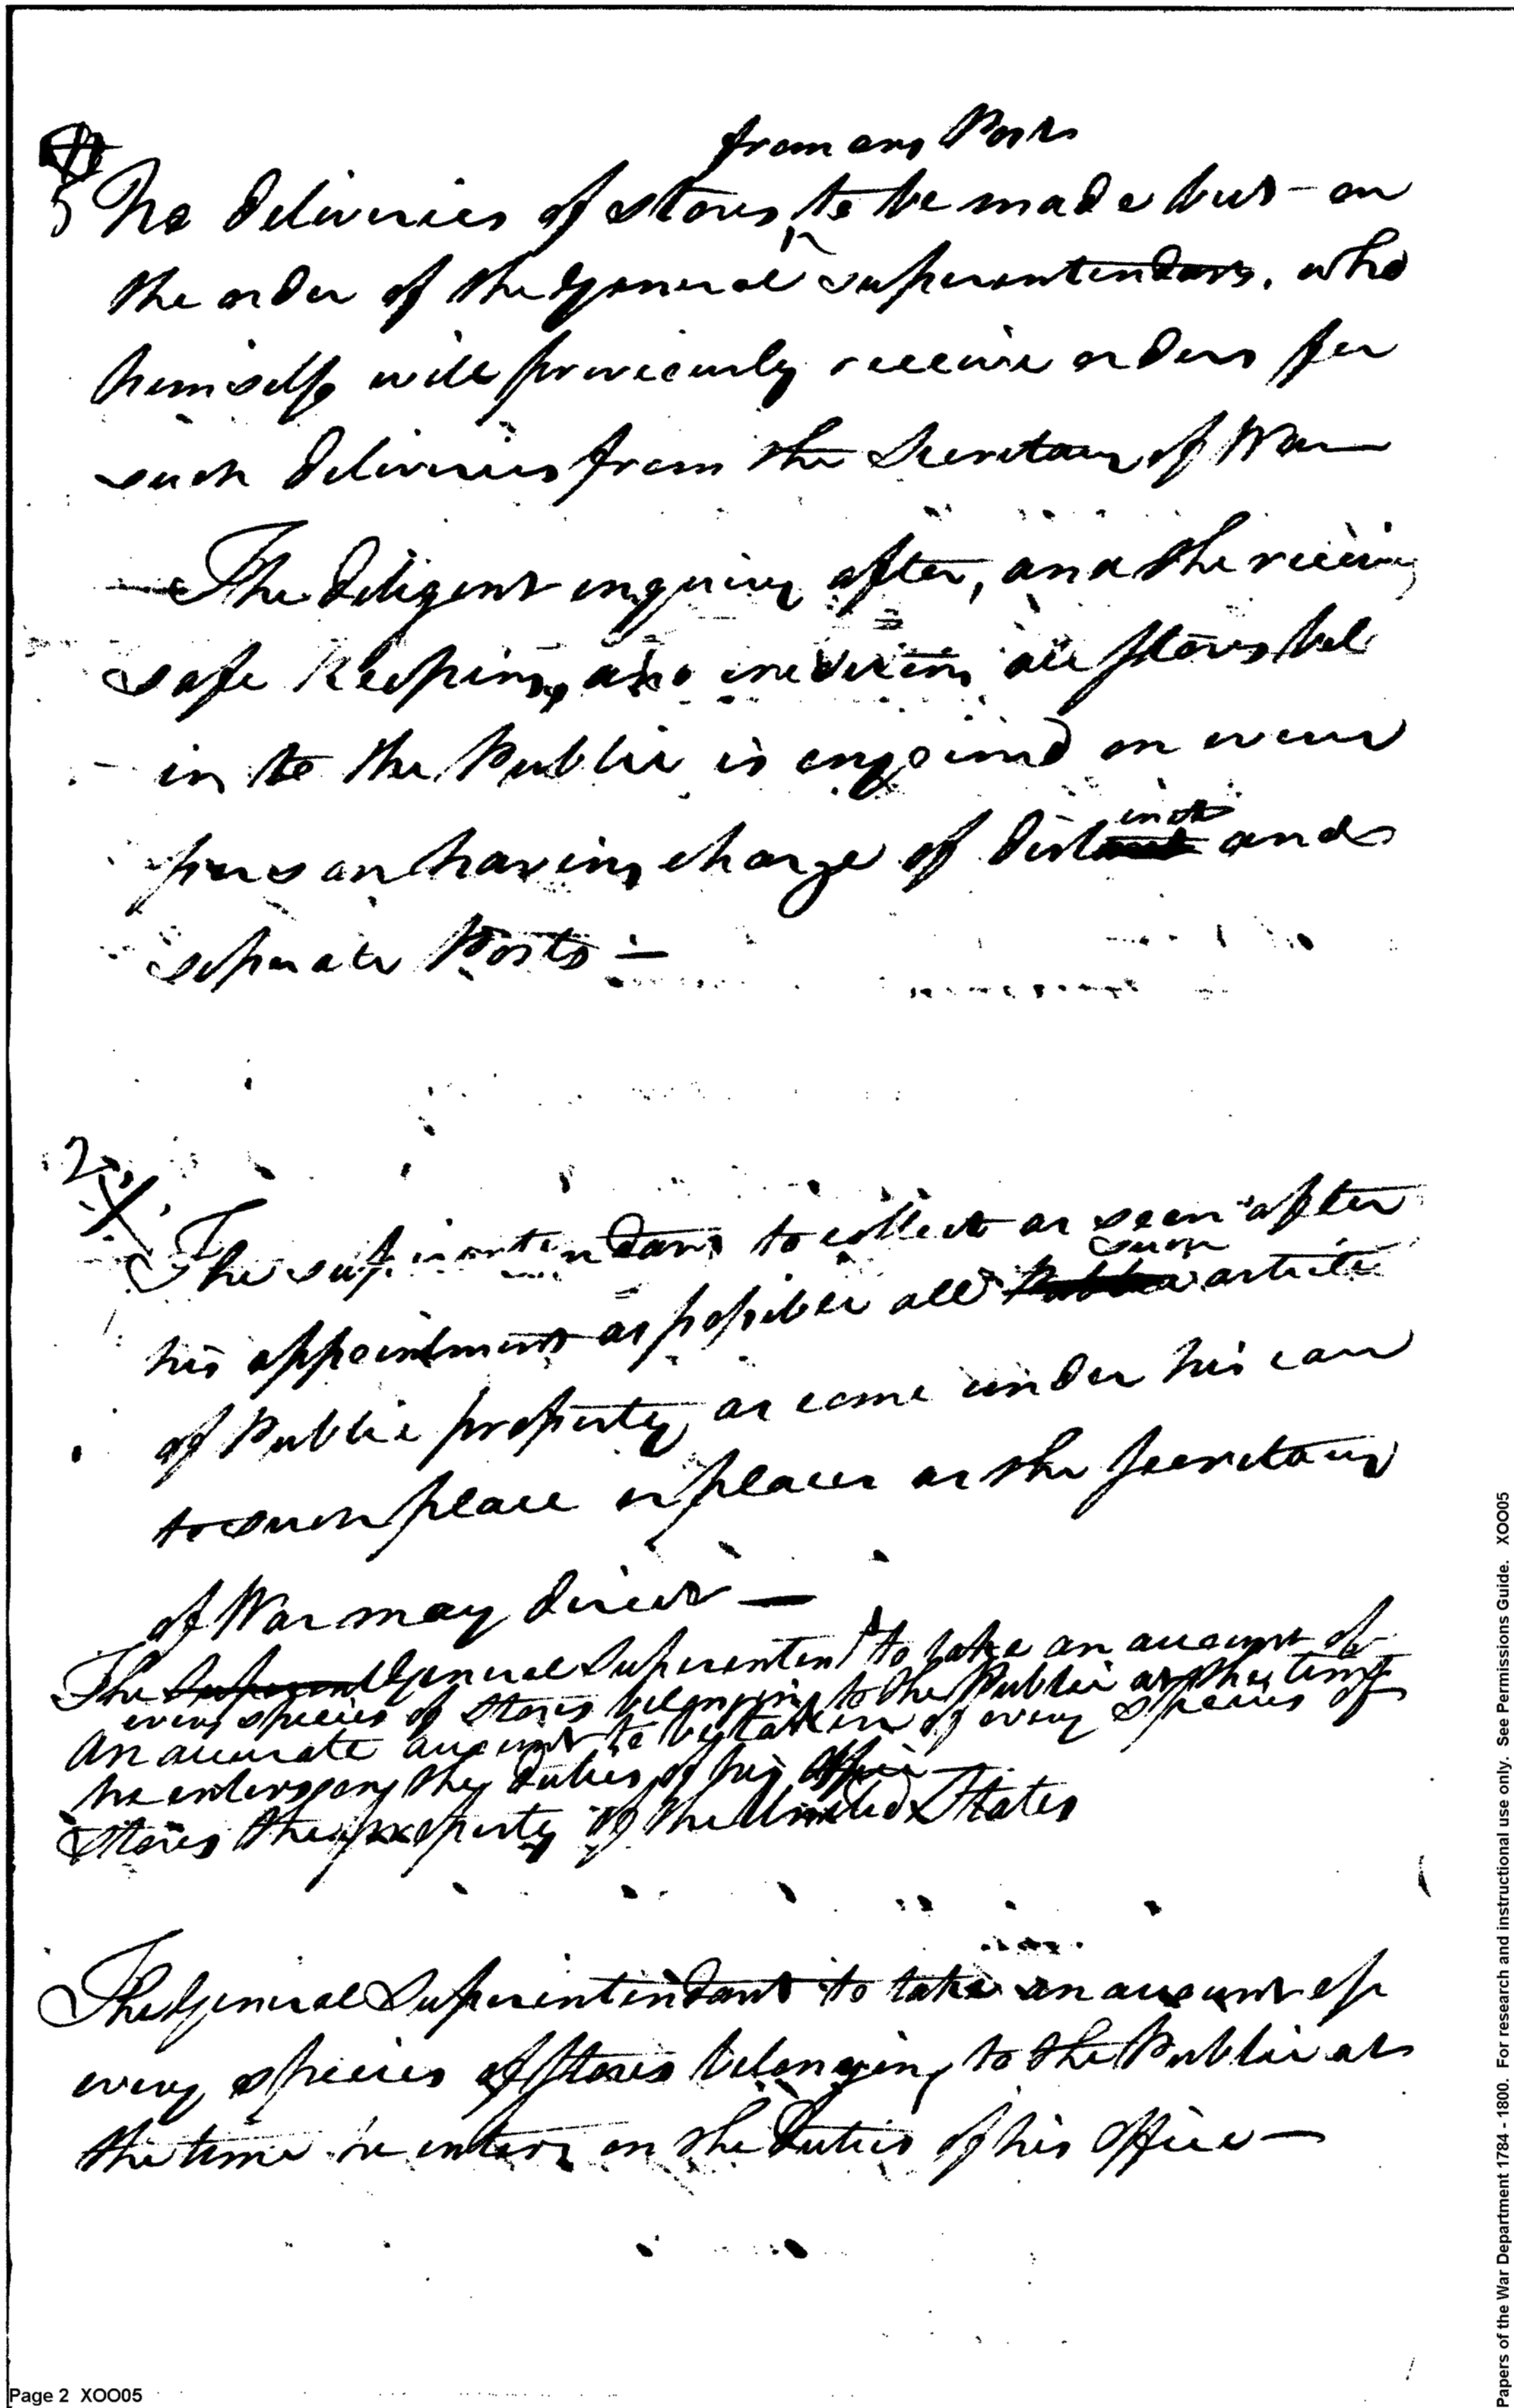 from any Posts
5 No deliveries of stores to be made but on
the order of the General superintendant, who
himself will previously receive orders for
such deliveries from the Secretary of War
The diligent enquiry after, and the receiving
safe keeping, also all stores bel
ing to the Public is enjoined on every
inct
person having charge of dist and
separate Posts —
2
X
The superintendant to collect as soon after
such
his appointment as possible all Public article
of Public property as come under his care
to such place or places as the Secretary
of War may direct —
The General Superintendt to take an account of
every species of Stores belonging to the Public at the time
An accurate account to be taken of every species of
he enters on the duties of his office
Stores the property of the United States
The General Superintendant to take an account of
every species of Stores belonging to the Public at
the time he enters on the Duties of his Office —
Page 2 XOO05
Papers of the War Department 1784 - 1800. For research and instructional use only. See Permissions Guide. XOO05